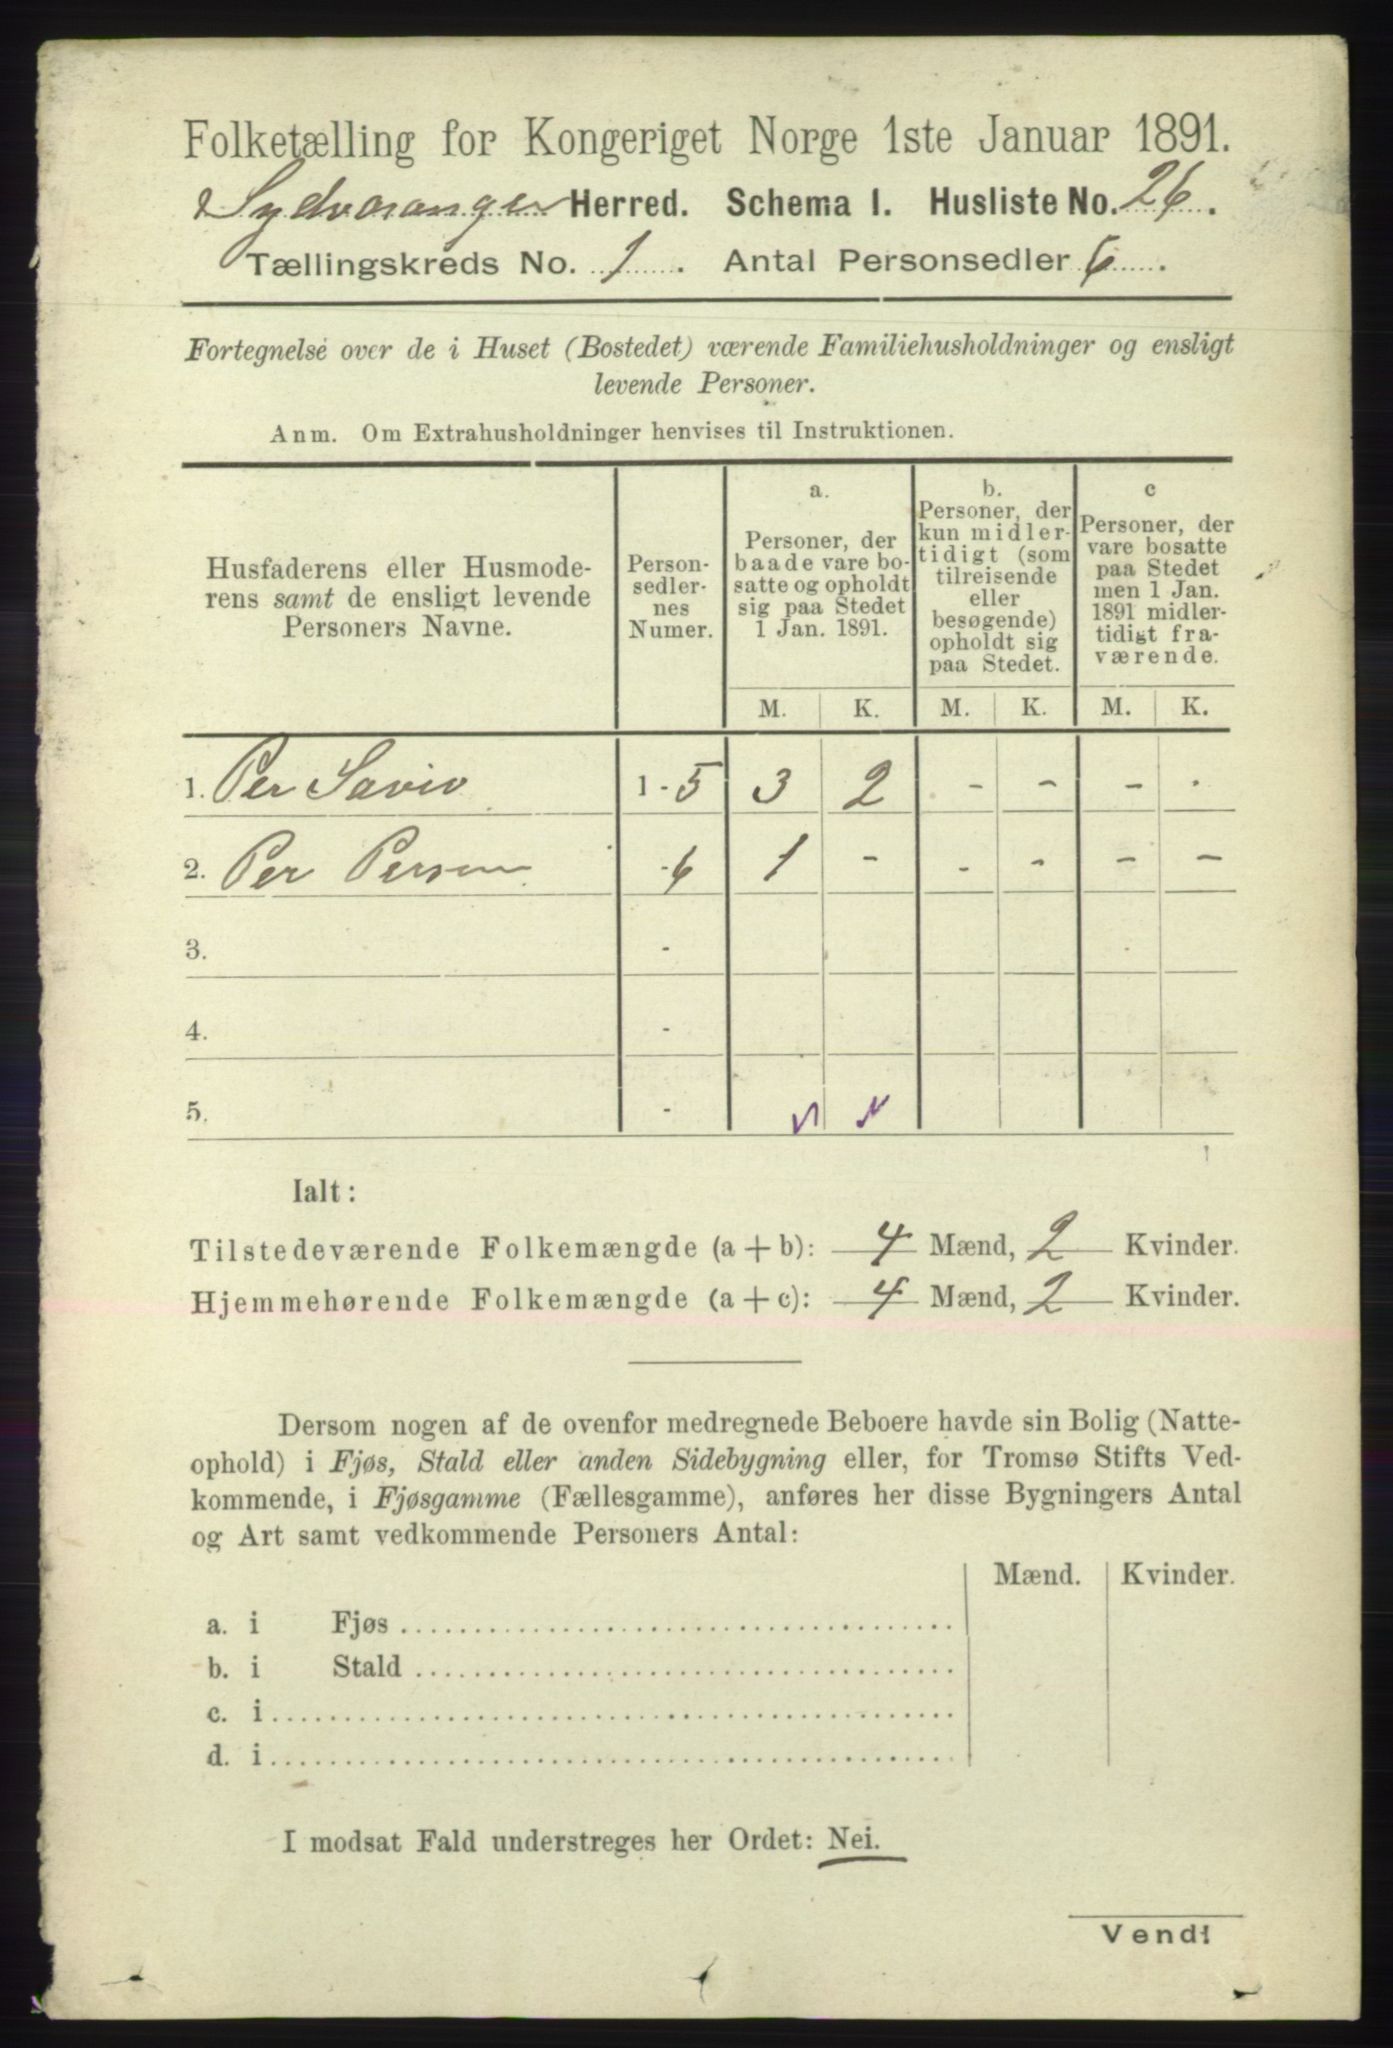 Folketælling for Kongeriget Norge 1ste Januar 1891.
Sydvaranger Herred. Schema I. Husliste No. 26.
Tællingskreds No. 1. Antal Personsedler 6.
Fortegnelse over de i Huset (Bostedet) værende Familiehusholdninger og ensligt
levende Personer.
Anm. Om Extrahusholdninger henvises til Instruktionen.
Husfaderens eller Husmode-
rens samt de ensligt levende
Personers Navne.
Person-
sedler-
nes
Numer.
a.
Personer, der
baade vare bo-
satte og opholdt
sig paa Stedet
1 Jan. 1891.
b.
Personer, der
kun midler-
tidigt (som
tilreisende
eller
besøgende)
opholdt sig
paa Stedet.
c
Personer, der
vare bosatte
paa Stedet
men 1 Jan.
1891 midler-
tidigt fra-
værende.
M. K. M. K. M. K.
1. Per Savio 1 - 5 3 2 - - - -
2. Per Persen - 6 1 - - - - -
3. -
4. -
5. -
Ialt:
Tilstedeværende Folkemængde (a + b): 4 Mænd, 2 Kvinder.
Hjemmehørende Folkemængde (a + c): 4 Mænd, 2 Kvinder.
Dersom nogen af de ovenfor medregnede Beboere havde sin Bolig (Natte-
ophold) i Fjøs, Stald eller anden Sidebygning eller, for Tromsø Stifts Ved-
kommende, i Fjøsgamme (Fællesgamme), anføres her disse Bygningers Antal
og Art samt vedkommende Personers Antal:
Mænd. Kvinder.
a. i Fjøs
b. i Stald
c. i
d. i
I modsat Fald understreges her Ordet: Nei.
Vend!